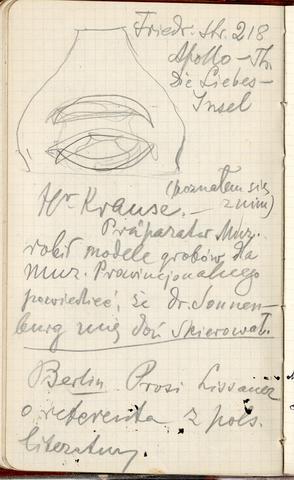 Friedr. Str. 218
Apollo-Th.
Die Liebes-
Insel
Hr Krause. (poznałem się
z nim)
Präparator Muz.
robił modele grobów dla
Muz. Prowincjonalnego
powiedzieć, że dr. Sonnen-
burg mię doń skierował.
Berlin Prosi Lissauer
o referenta z pols.
literatury.